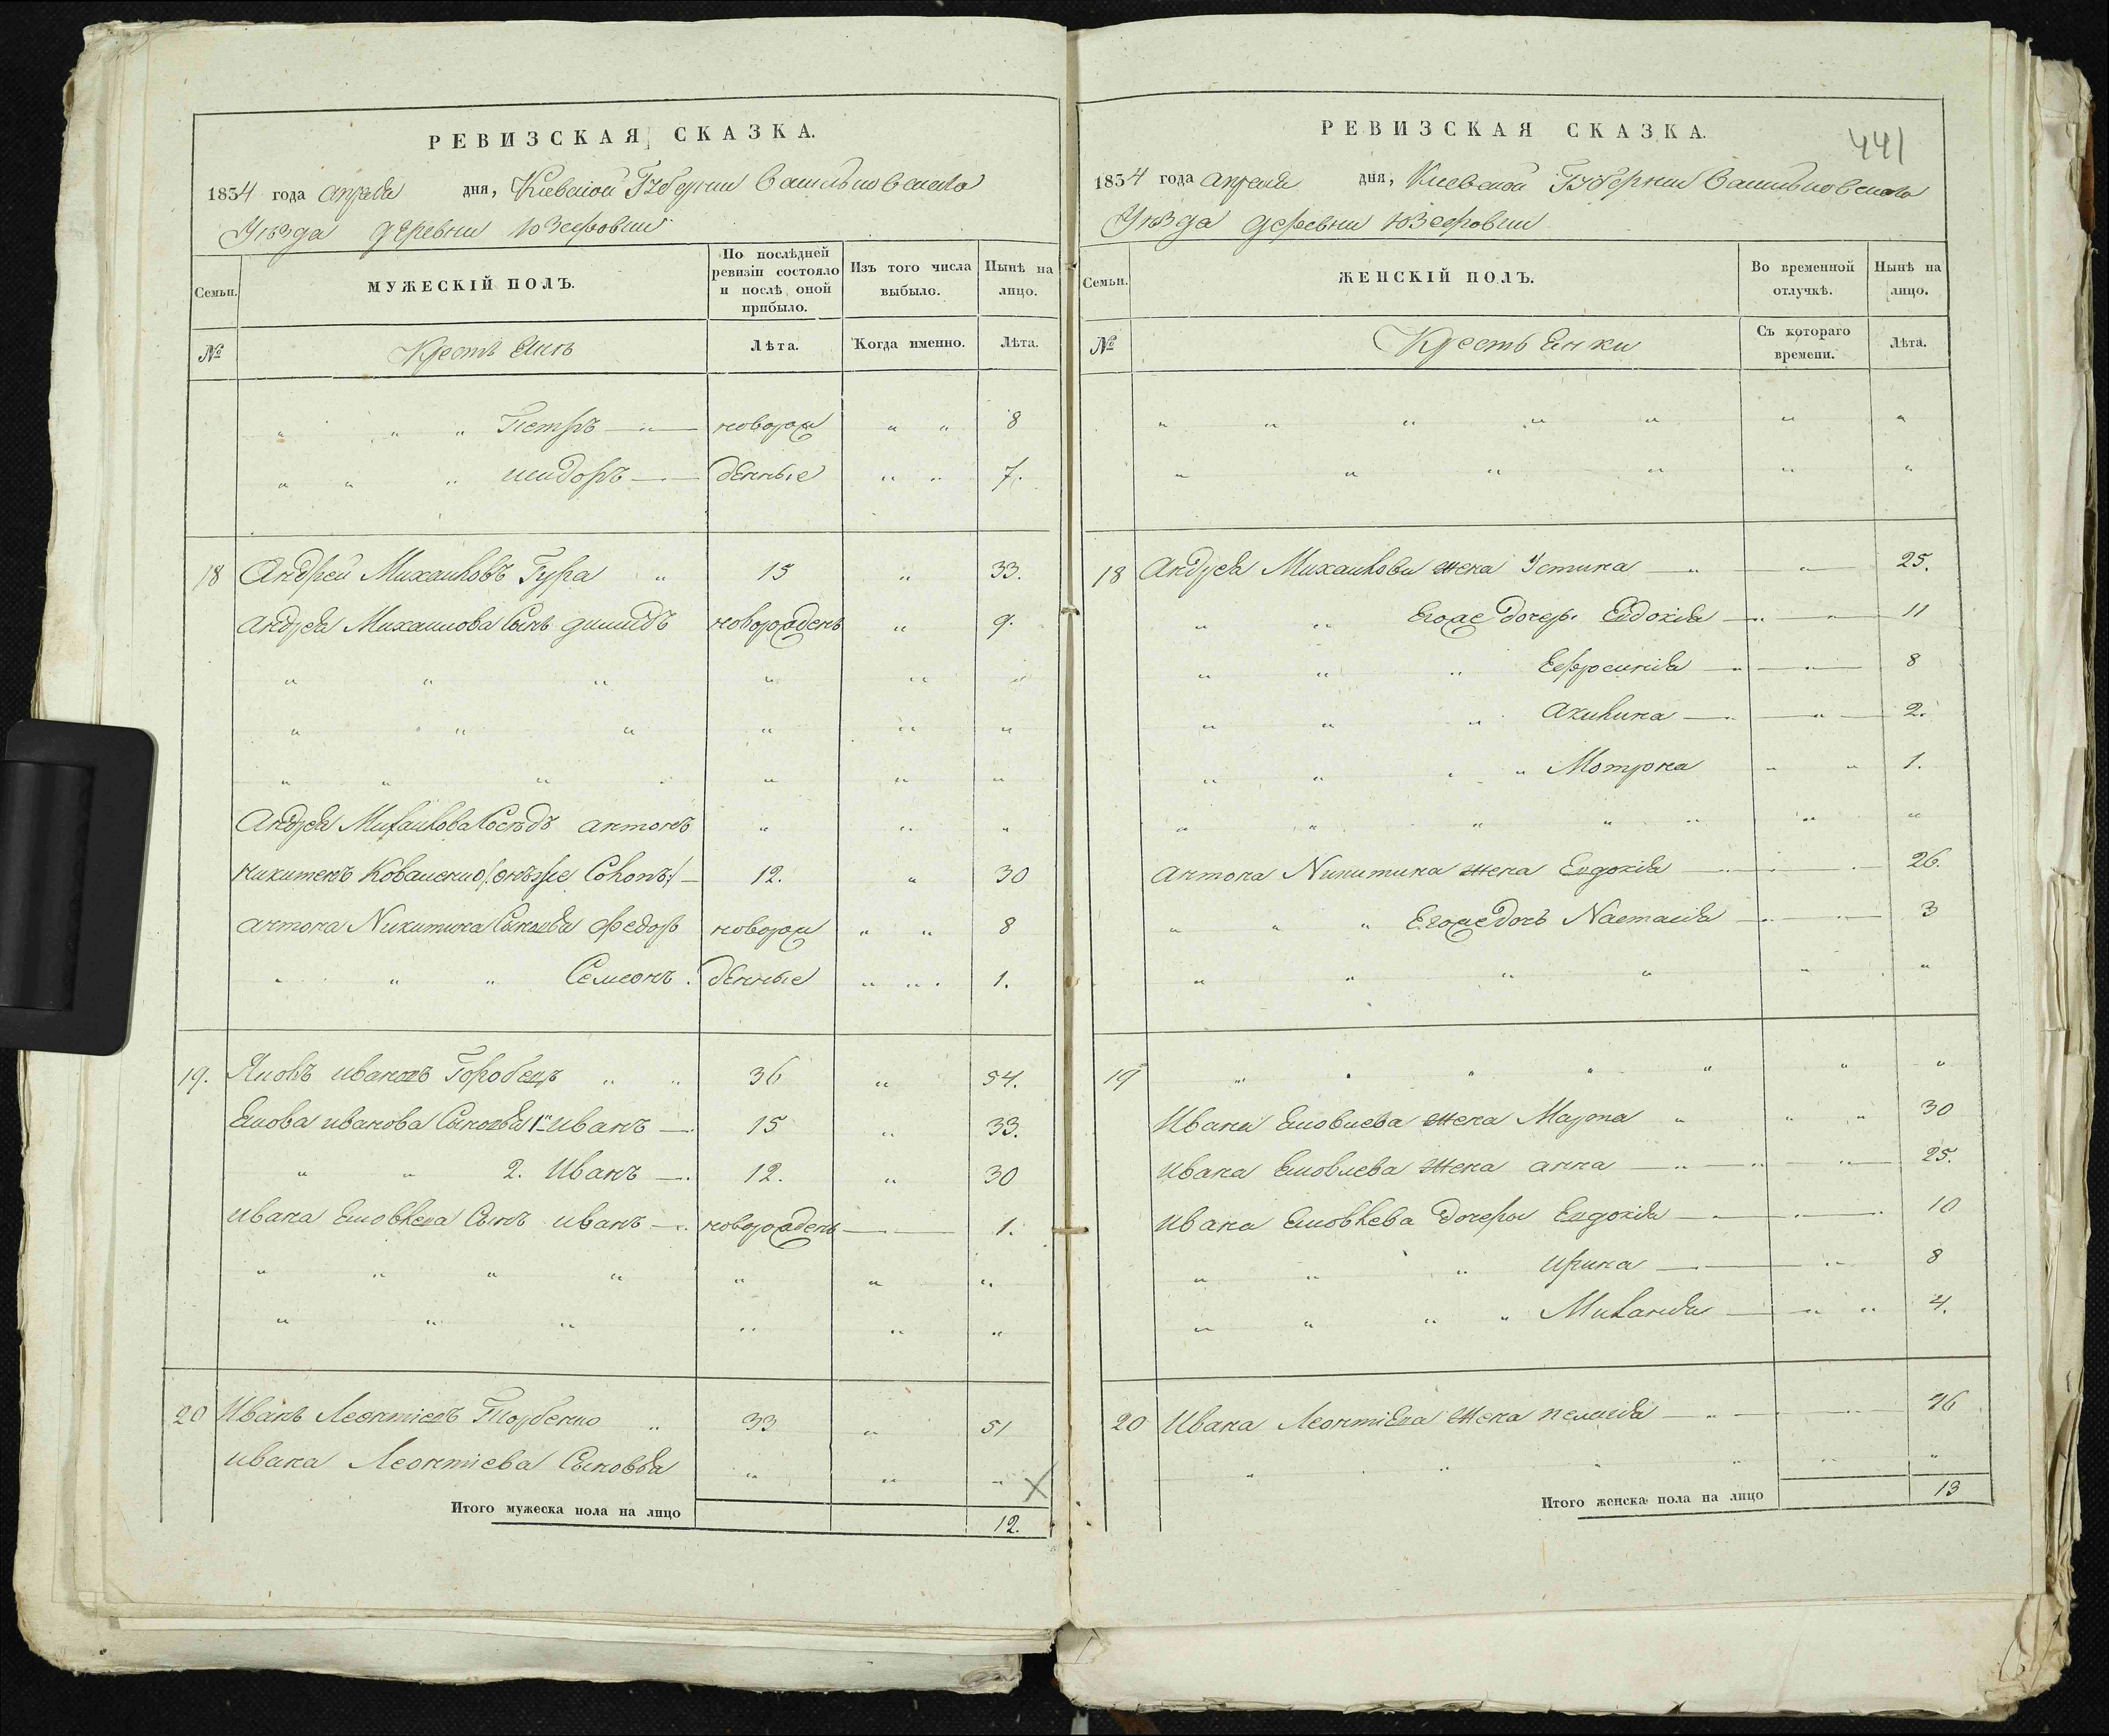 РЕВИЗСКАЯ СКАЗКА.
1834 года Апреля дня, Киевской Губернии Васильковскаго
Уѣзда деревни Юзефовки
Семьи. МУЖЕСКІЙ ПОЛЪ. По послѣдней ревизіи состояло и послѣ оной прибыло. Изъ того числа выбыло. Нынѣ на лицо.
№ Крестьяне Лѣта. Когда именно. Лѣта.
" " " Петръ — новорож " " 8
" " " Сидоръ — денные " " 7.
18 Андрей Михайловъ Гура " 15 " 33.
Андрея Михайлова Сынъ новорожденъ " 9.
" " " " " "
" " " " " "
" " " " " "
Андрея Михайлова Сосѣдъ Антонъ " " "
Никитенъ Коваленко 12. " 30
Антона Никитина Сыновья Федоръ новорож " " 8
" " " Семенъ. денные " " 1.
19. Яковъ Ивановъ Горобецъ " " 36 " 54.
Якова Иванова Сыновья 1й Иванъ — 15 " 33.
" " 2. Иванъ — 12. " 30
Ивана Яковлева Сынъ Иванъ — новорожденъ — 1.
" " " " " " "
" " " " " "
20 Иванъ Леонтіевъ " 33 " 51
Ивана Леонтіева Сыновья " " "
Итого мужеска пола на лицо 12.
РЕВИЗСКАЯ СКАЗКА.
441
1834 года Апреля дня, Киевской Губернии Васильковскаго
Уѣзда деревни Юзефовки
Семьи. ЖЕНСКІЙ ПОЛЪ. Во временной отлучкѣ. Нынѣ на лицо.
№ Крестьянки Съ котораго времени. Лѣта.
" " " " " " "
" " " " " "
18 Андрея Михайлова жена Устина — " — 25.
" " Егоже дочери Евдокія — 11
" " " Ефросинія — 8
" " " Акилина — 2.
" " " Мотрона " " 1.
" " " " " " "
Антона Никитина жена Евдокія — 26.
" " " Егоже дочь Настасія — 3
" " " " " "
19 " " " " " " "
Ивана Яковлева жена Марта " " " 30
Ивана Яковлева жена Анна — 25.
Ивана Яковлева дочери Евдокія — 10
" " " Ирина — 8
" " " " Миланія — 4.
20 Ивана Леонтіева жена Пелагія — 46
" " " " " "
Итого женска пола на лицо 13